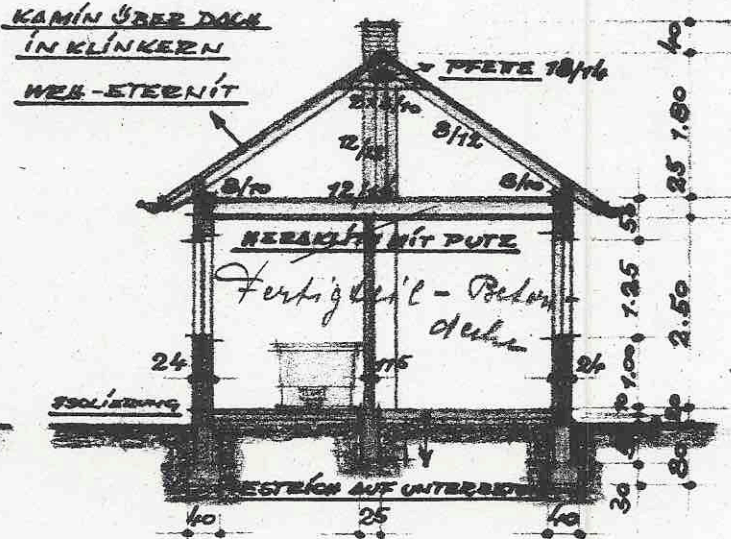 KAMIN ÜBER DACH
IN KLINKERN
WELL-ETERNIT
PFETTE 18/14
8/12
12/12
8/10
8/10
HERAKLITH MIT PUTZ
Fertigteil - Beton-
decke
24
11⁵
24
ISOLIERUNG
ESTRICH AUF UNTERBETON
40
25
40
40
1.80
25
1.25
2.50
1.00
80
30